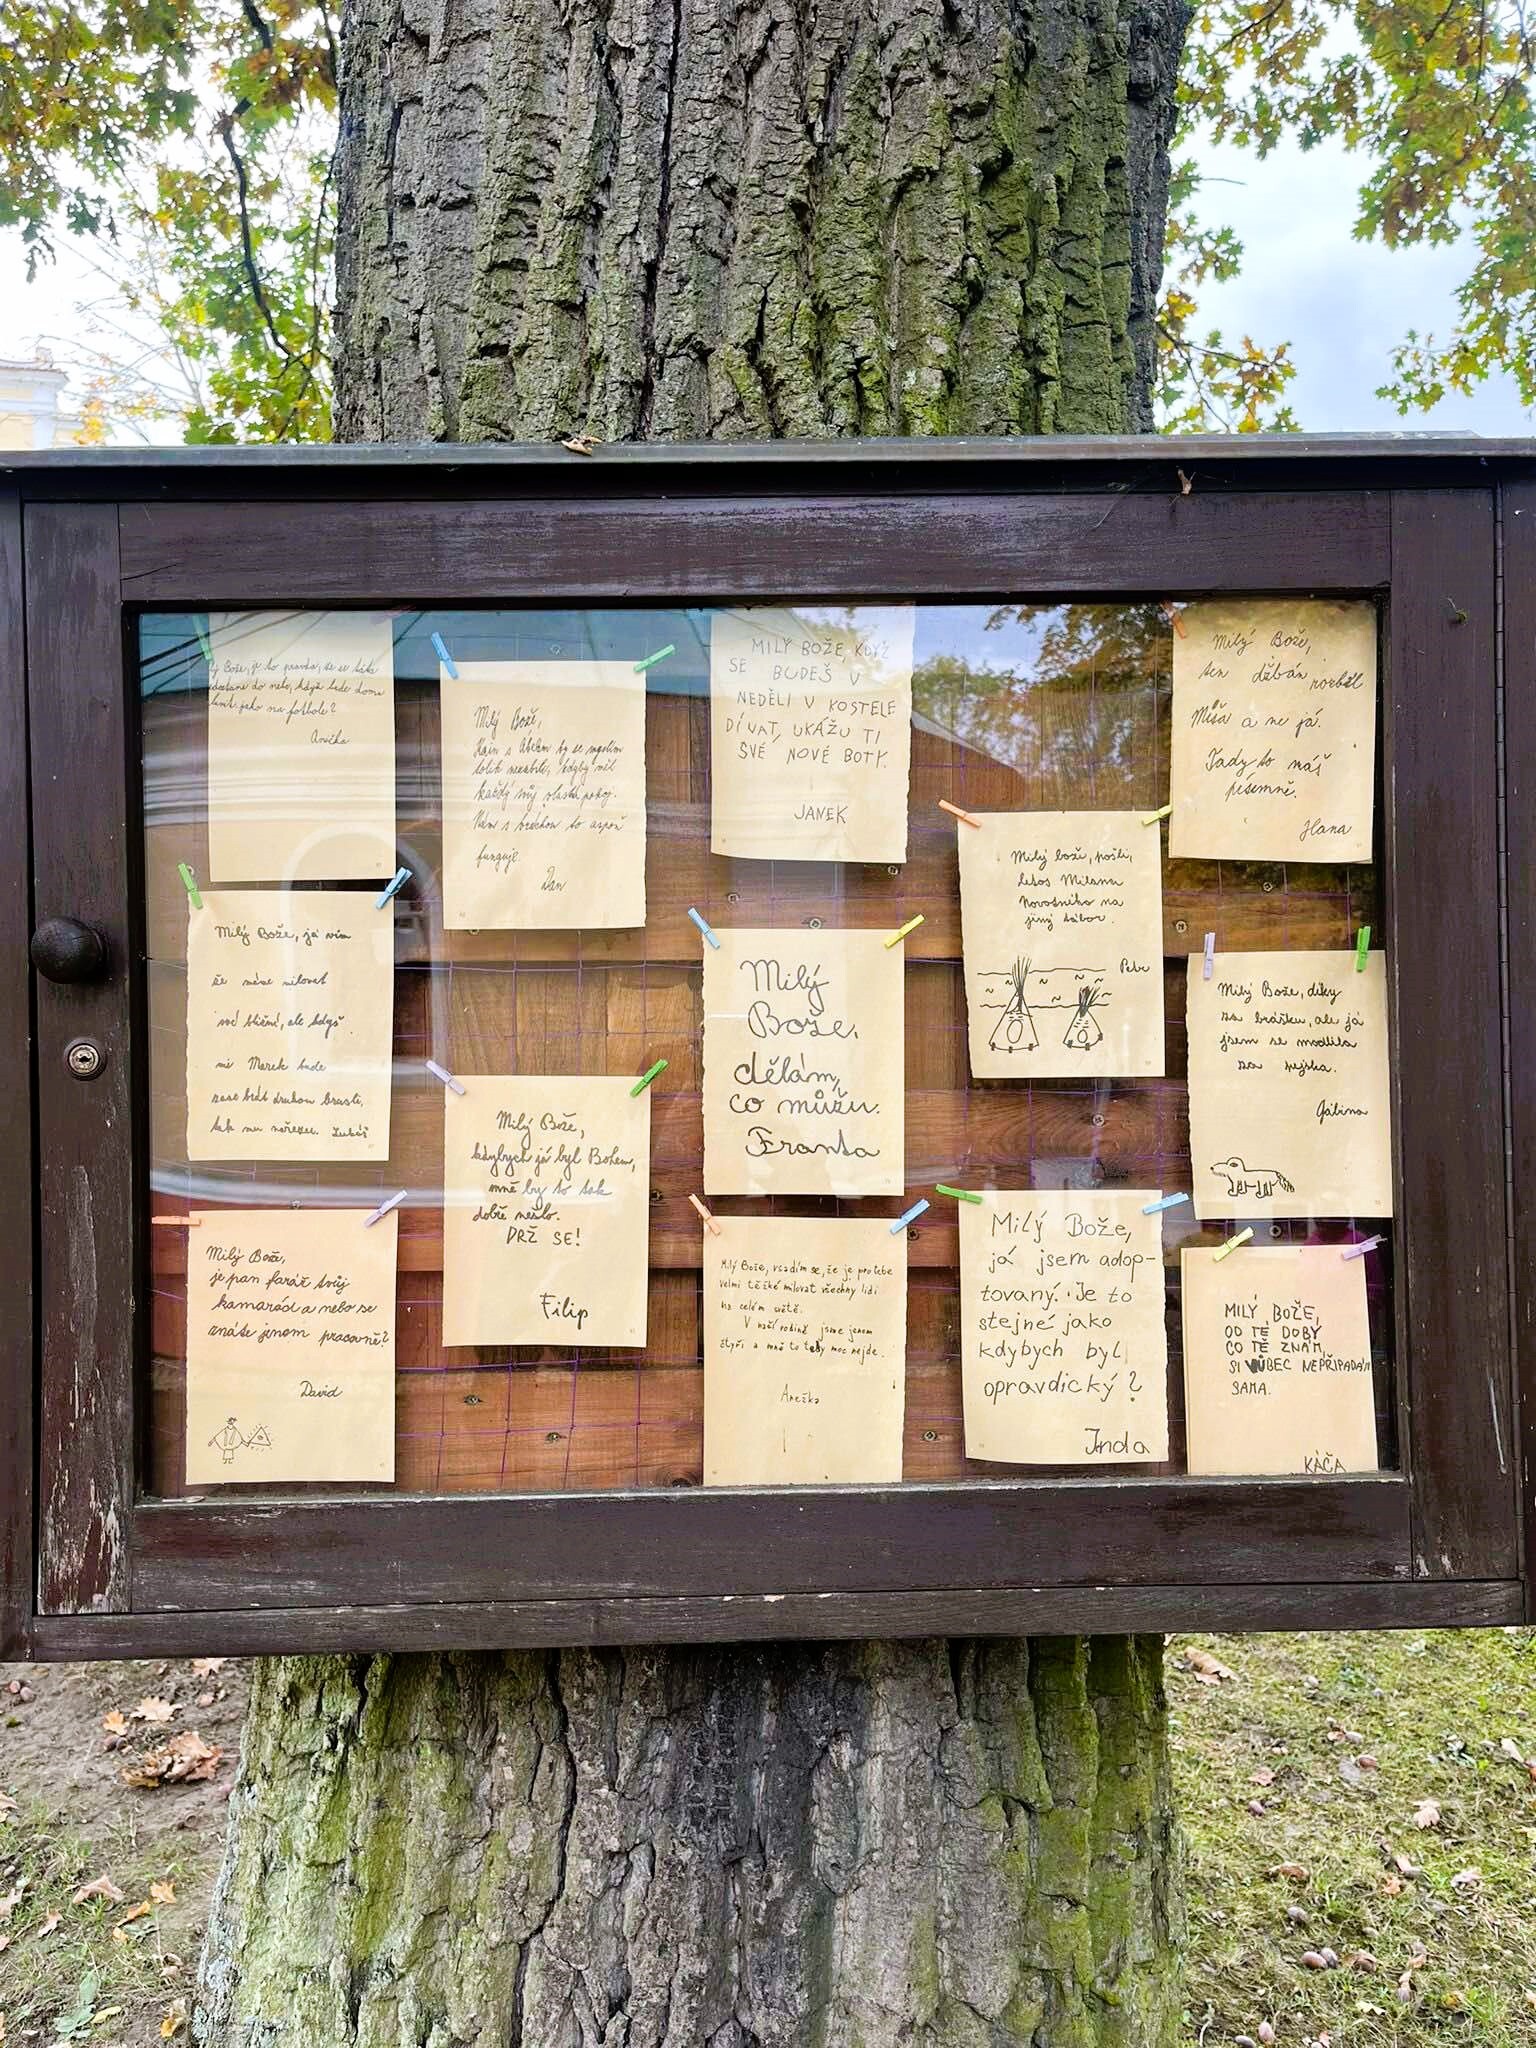 Bože, je to pravda, že se táta
nedostane do nebe, když bude doma
jako na fotbale?
Anička
Milý Bože,
Kain s Ábelem by se nejspíš
tolik nezabili, kdyby měl
každý svůj vlastní pokoj.
Nám s bráchou to aspoň
funguje.
Dan
MILÝ BOŽE, KDYŽ
SE BUDEŠ V
NEDĚLI V KOSTELE
DÍVAT, UKÁŽU TI
SVÉ NOVÉ BOTY.
JANEK
Milý Bože,
ten džbán rozbil
Míša a ne já.
Tady to máš
písemně.
Hana
Milý bože, pošli,
letos Milana
Novotného na
jiný tábor.
Petr
Milý Bože, já vím
že máme milovat
své bližní, ale když
mi Marek bude
zase brát druhou brusli,
tak mu nařežu. Lukáš
Milý
Bože,
dělám,
co můžu.
Franta
Milý Bože, díky
za brášku, ale já
jsem se modlila
za pejska.
Gábina
Milý Bože,
kdybych já byl Bohem,
mně by to tak
dobře nešlo.
DRŽ SE!
Filip
Milý Bože,
je pan farář tvůj
kamarád a nebo se
znáte jenom pracovně?
David
Milý Bože, vsadím se, že je pro tebe
velmi těžké milovat všechny lidi
na celém světě.
V naší rodině jsme jenom
čtyři a mně to teda moc nejde.
Anežka
Milý Bože,
já jsem adop-
tovaný. Je to
stejné jako
kdybych byl
opravdický?
Jnda
MILÝ BOŽE,
OD TÉ DOBY
CO TĚ ZNÁM,
SI VŮBEC NEPŘIPADÁM
SAMA.
KÁČA